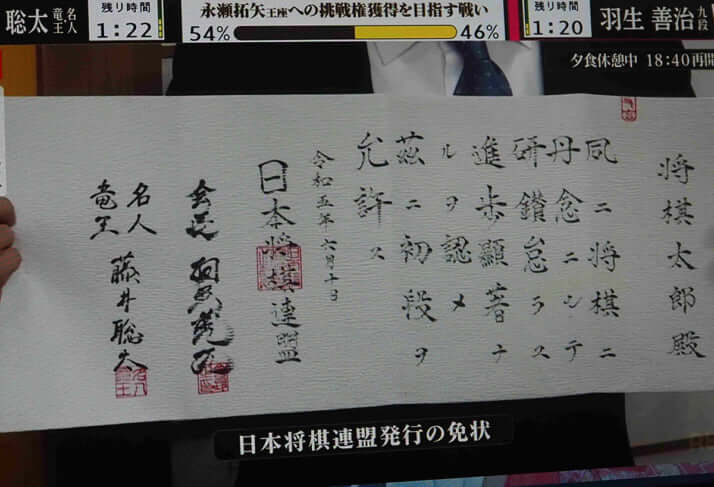 聡太 竜王 名人
残り時間
1:22
永瀬拓矢王座への挑戦権獲得を目指す戦い
54%
46%
残り時間
1:20
羽生 善治 九段
夕食休憩中 18:40再開
将棋太郎殿
夙ニ将棋ニ
丹念ニシテ
研鑽怠ラス
進歩顯著ナ
ルヲ認メ
茲ニ初段ヲ
允許ス
令和五年六月十日
日本将棋連盟
会長 羽生善治
名人
竜王 藤井聡太
日本将棋連盟発行の免状